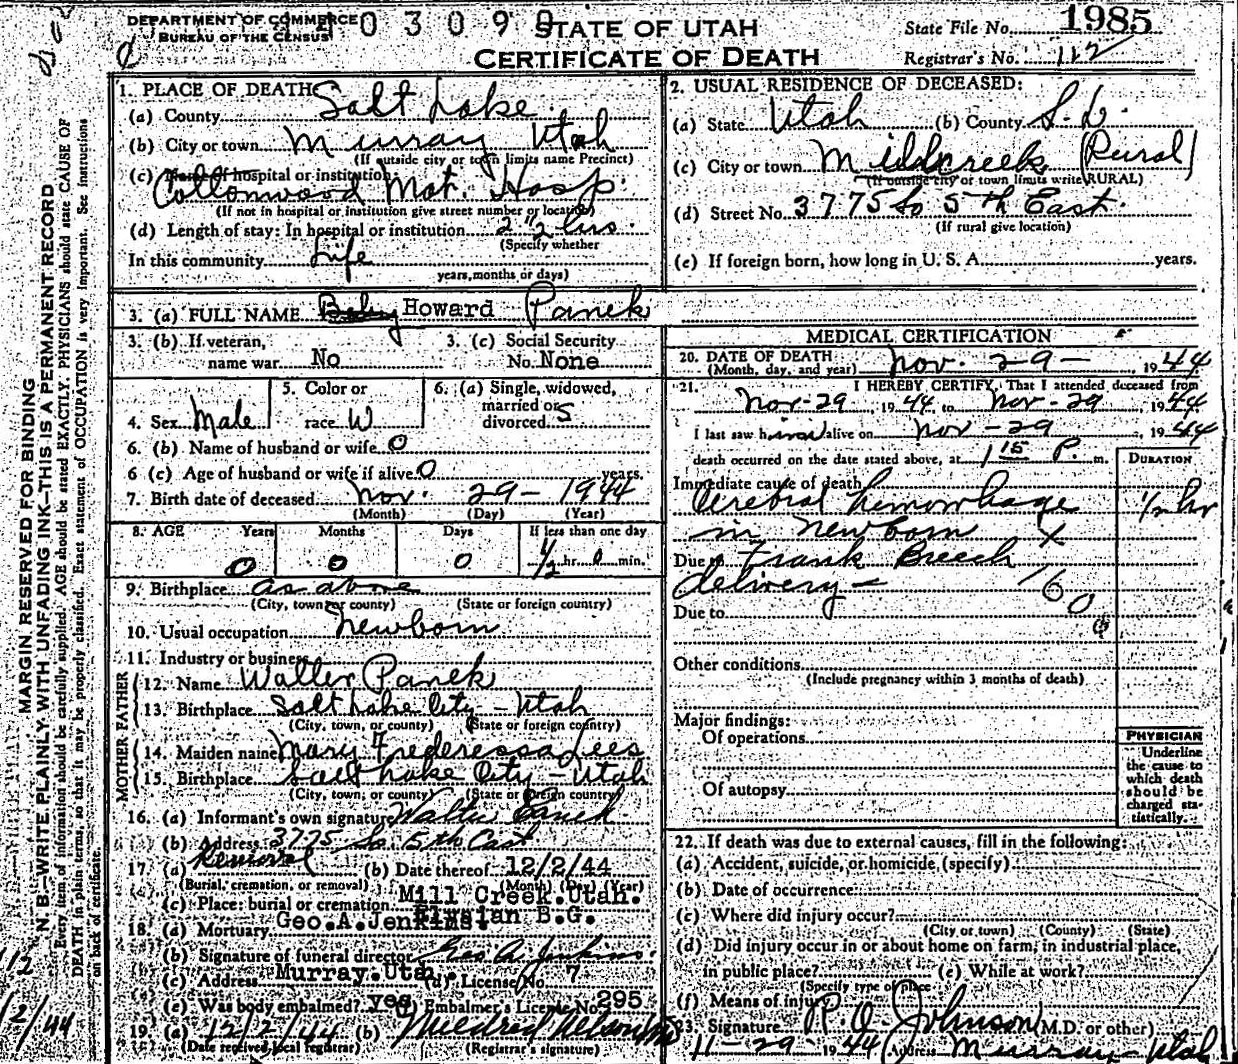 DEPARTMENT OF COMMERCE
BUREAU OF THE CENSUS
0309
STATE OF UTAH
CERTIFICATE OF DEATH
State File No. 1985
Registrar's No. 112
MARGIN RESERVED FOR BINDING
N. B.—WRITE PLAINLY WITH UNFADING INK—THIS IS A PERMANENT RECORD
Every item of information should be carefully supplied. AGE should be stated EXACTLY. PHYSICIANS should state CAUSE OF
DEATH in plain terms, so that it may be properly classified. Exact statement of OCCUPATION is very important. See instructions
on back of certificate.
1. PLACE OF DEATH:
(a) County Salt Lake
(b) City or town Murray Utah
(If outside city or town limits name Precinct)
(c) Name of hospital or institution
Cottonwood Mat. Hosp.
(If not in hospital or institution give street number or location)
(d) Length of stay: In hospital or institution 2 1/2 hrs.
(Specify whether
In this community Life
years, months or days)
2. USUAL RESIDENCE OF DECEASED:
(a) State Utah (b) County S.L.
(c) City or town Millcreek (Rural)
(If outside city or town limits write RURAL)
(d) Street No. 3775 So 5th East.
(If rural give location)
(e) If foreign born, how long in U. S. A. years.
3. (a) FULL NAME Baby Howard Panek
3. (b) If veteran,
name war No
3. (c) Social Security
No. None
4. Sex Male
5. Color or
race W
6. (a) Single, widowed,
married or
divorced S
6. (b) Name of husband or wife 0
6 (c) Age of husband or wife if alive 0 years.
7. Birth date of deceased Nov. 29 - 1944
(Month) (Day) (Year)
8. AGE Years Months Days If less than one day
0 0 0 1/2 hr. 0 min.
9. Birthplace as above
(City, town or county) (State or foreign country)
10. Usual occupation Newborn
11. Industry or business
FATHER
12. Name Walter Panek
13. Birthplace Salt Lake City - Utah
(City, town, or county) (State or foreign country)
MOTHER
14. Maiden name Mary Frederessa Lees
15. Birthplace Salt Lake City - Utah
(City, town, or county) (State or foreign country)
16. (a) Informant's own signature Walter Panek
(b) Address 3775 So. 5th East
17 (a) Removal (b) Date thereof 12/2/44
(Burial, cremation, or removal) (Month) (Day) (Year)
(c) Place: burial or cremation Mill Creek.Utah.
Elysian B.G.
18. (a) Mortuary Geo.A.Jenkins.
(b) Signature of funeral director Geo A. Jenkins.
(c) Address Murray.Utah. (d) License No. 7
(e) Was body embalmed? yes Embalmer's License No. 295
19. (a) 12/2/44 (b) Mildred
(Date received local registrar) (Registrar's signature)
MEDICAL CERTIFICATION
20. DATE OF DEATH
(Month, day, and year) Nov. 29 - 1944
21. I HEREBY CERTIFY, That I attended deceased from
Nov-29, 1944 to Nov-29, 1944
I last saw him alive on Nov-29, 1944
death occurred on the date stated above, at 1 15 P. m.
DURATION
Immediate cause of death
Cerebral hemorrhage 1/2 hr
in newborn X
Due to Frank Breech
delivery - 160
Due to
Other conditions
(Include pregnancy within 3 months of death)
Major findings:
Of operations
Of autopsy
PHYSICIAN
Underline
the cause to
which death
should be
charged sta-
tistically.
22. If death was due to external causes, fill in the following:
(a) Accident, suicide, or homicide (specify)
(b) Date of occurrence
(c) Where did injury occur?
(City or town) (County) (State)
(d) Did injury occur in or about home on farm, in industrial place,
in public place? (e) While at work?
(Specify type of place
(f) Means of injury
23. Signature R.O. Johnson (M.D. or other)
11-29-1944 Address Murray Utah